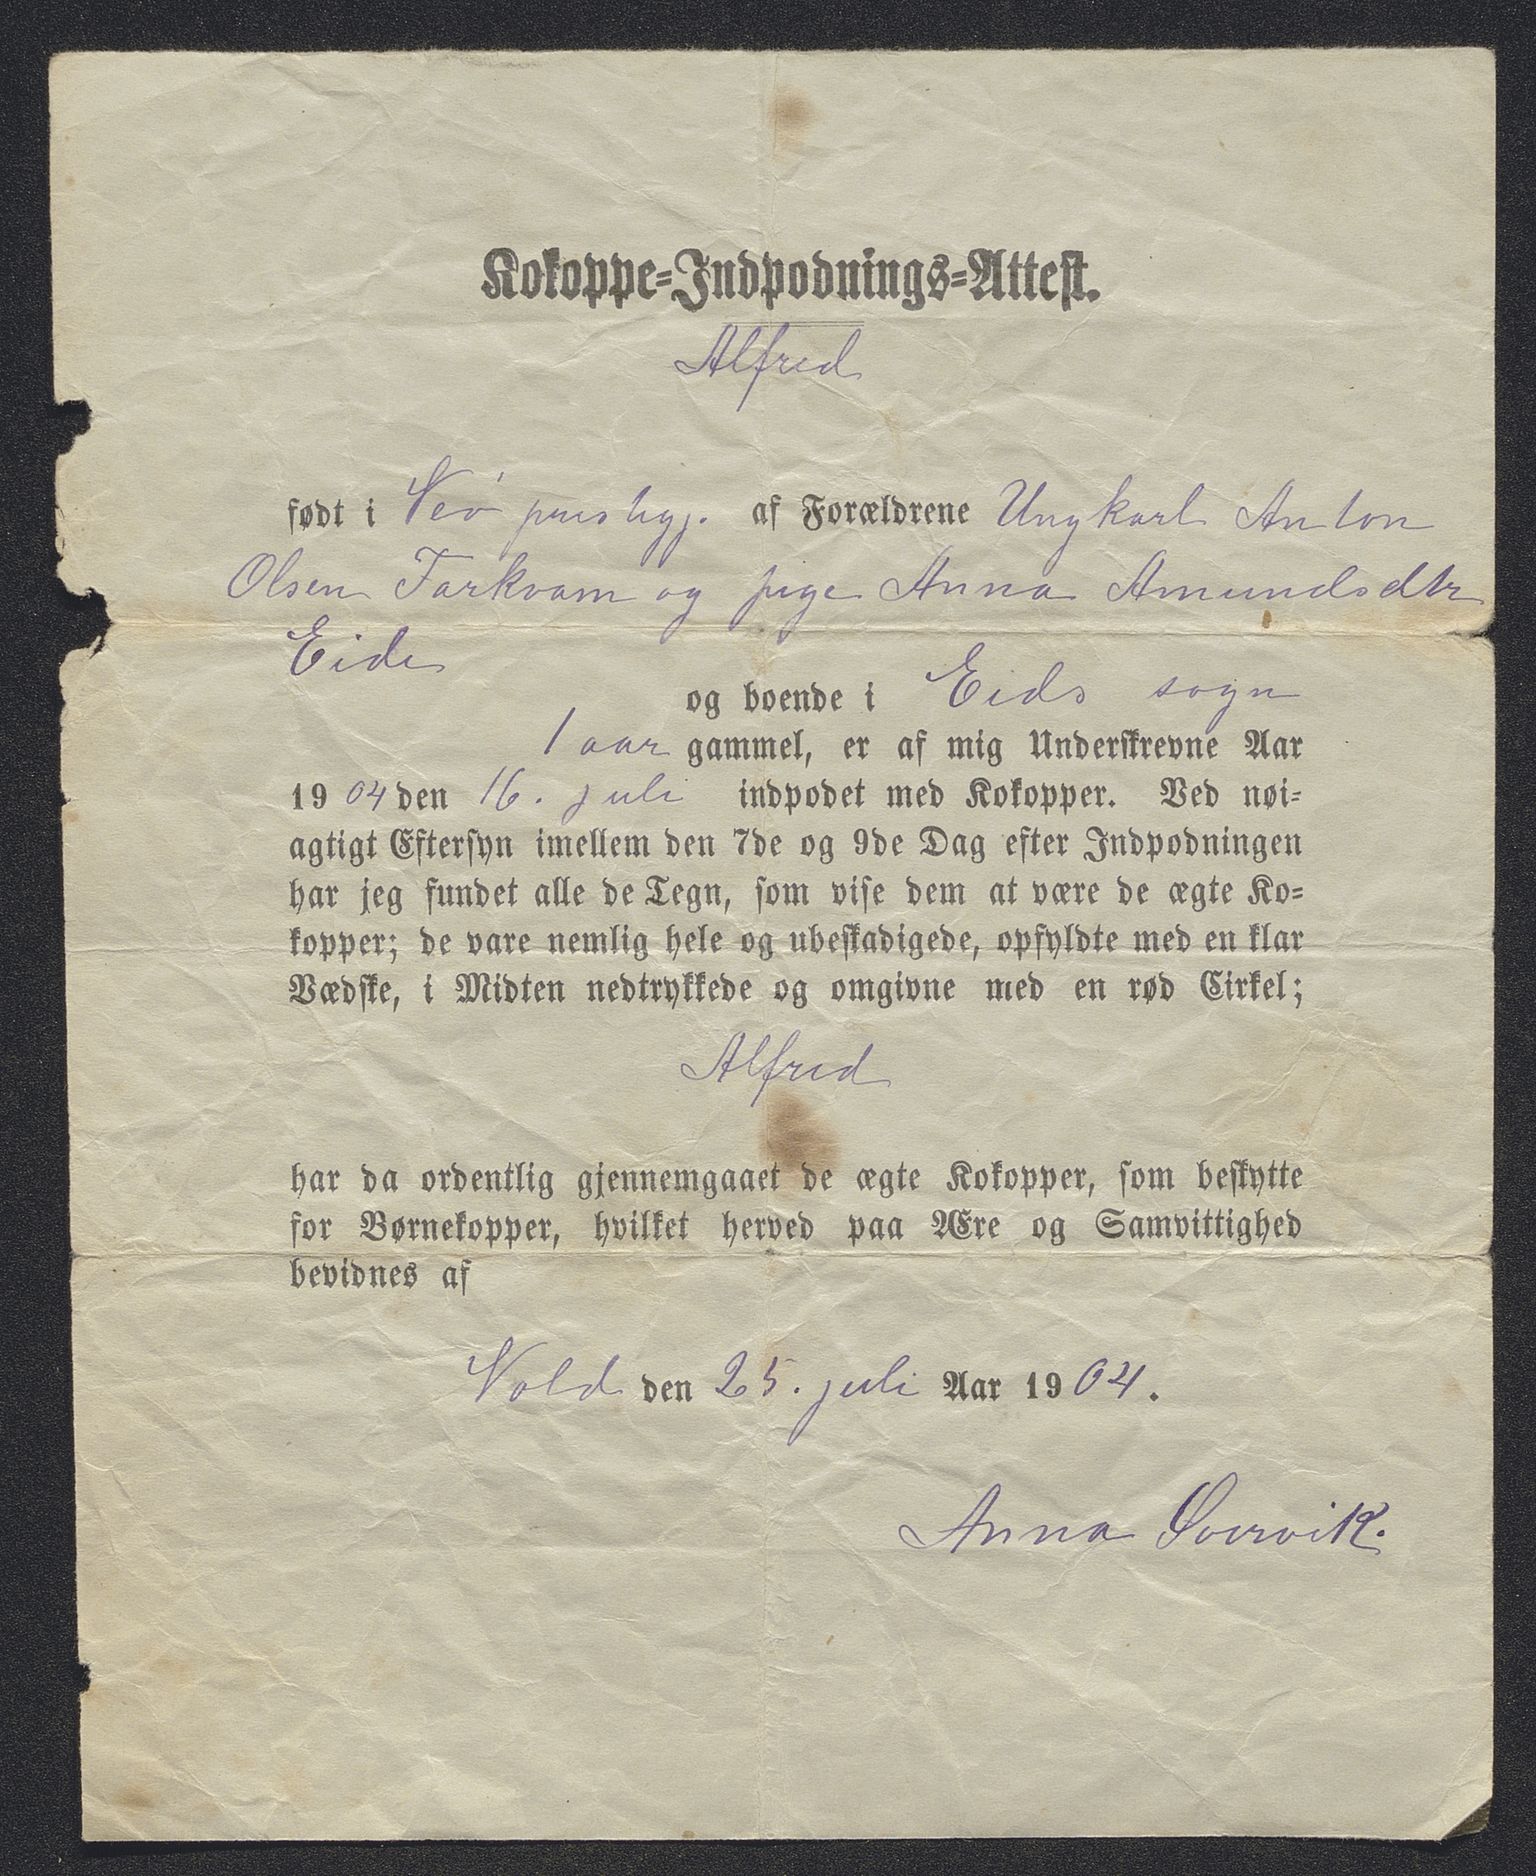 Kokoppe-Indpodnings-Attest.
Alfred
født i Veø prestegj. af Forældrene Ungkarl Anton
Olsen Torkvam og pige Anna Amundsdtr
Eide
og boende i Eids sogn
1 aar gammel, er af mig Underskrevne Aar
1904 den 16. juli indpodet med Kokopper. Ved nøi-
agtigt Eftersyn imellem den 7de og 9de Dag efter Indpodningen
har jeg fundet alle de Tegn, som vise dem at være de ægte Ko-
kopper; de vare nemlig hele og ubeskadigede, opfyldte med en klar
Vædske, i Midten nedtrykkede og omgivne med en rød Cirkel;
Alfred
har da ordentlig gjennemgaaet de ægte Kokopper, som beskytte
for Børnekopper, hvilket herved paa Ære og Samvittighed
bevidnes af
Vold den 25. juli Aar 1904.
Anna